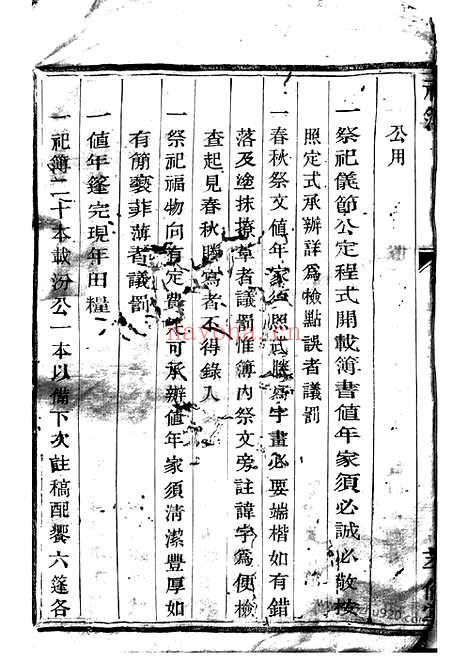 公用
一祭祀儀節公定程式開載簿書值年家須必誠必敬按
照定式承辦詳爲檢點誤者議罰
一春秋祭文值年家須照式謄寫字畫必要端楷如有錯
落及塗抹撩草者議罰惟簿內祭文旁註諱字爲便檢
查起見春秋謄寫者不得錄入
一祭祀福物向有定費可承辦值年家須清潔豐厚如
有簡褻菲薄者議罰
一值年篷完現年田糧
一祀簿二十本載汾公一本以備下次註稿配饗六篷各
nayona.cn